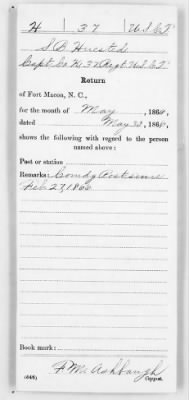 H | 37 | U.S.C.T.
S B Huested
Capt. Co. H. 37 Regt. U.S.C.T.
Return
of Fort Macon, N. C.,
for the month of May, 1866,
dated May 31, 1866,
shows the following with regard to the person
named above:
Post or station
Remarks: Comdg Post since
Feb. 27, 1866
Book mark:
F. M. Ashbaugh
(648) Copyist.